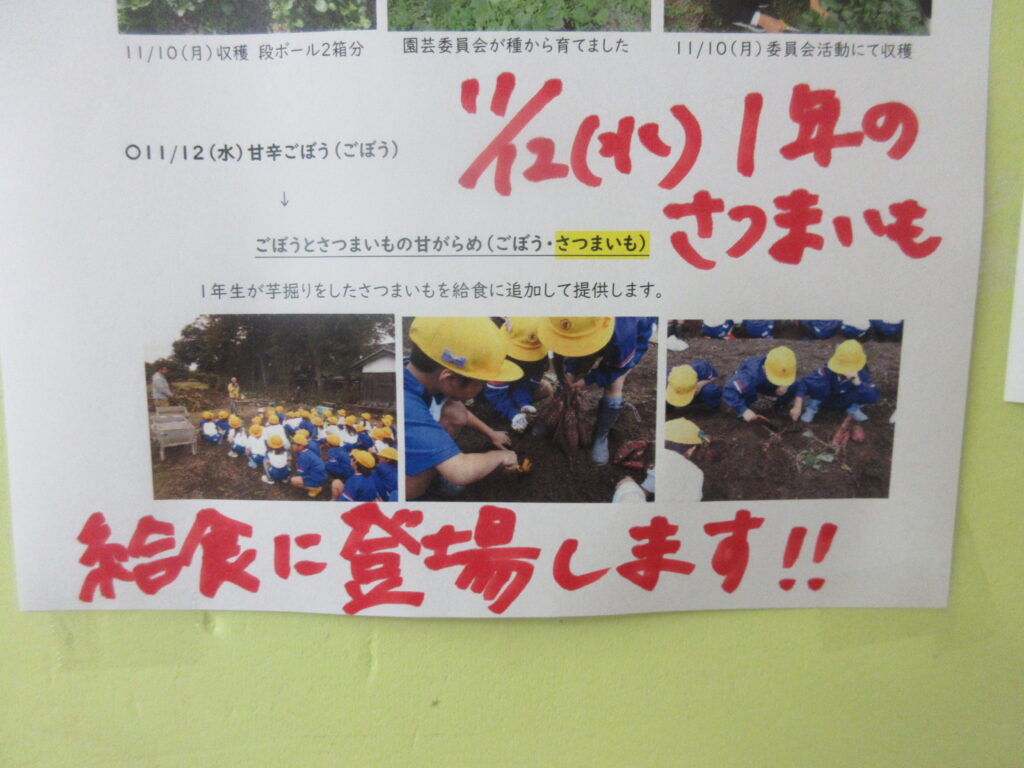 11/10(月)収穫 段ボール2箱分
園芸委員会が種から育てました
11/10(月)委員会活動にて収穫
11/12(水) 1年の
さつまいも
○11/12(水)甘辛ごぼう(ごぼう)
↓
ごぼうとさつまいもの甘がらめ(ごぼう・さつまいも)
1年生が芋掘りをしたさつまいもを給食に追加して提供します。
給食に登場します!!